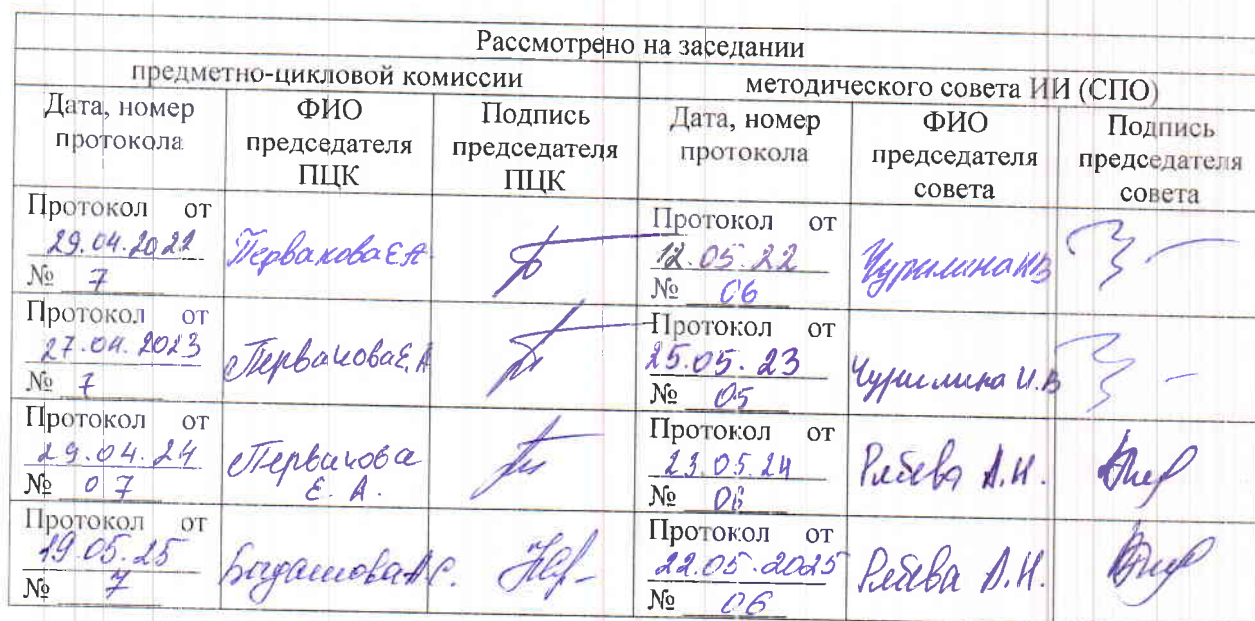 Рассмотрено на заседании
предметно-цикловой комиссии
методического совета ИИ (СПО)
Дата, номер
протокола
ФИО
председателя
ПЦК
Подпись
председателя
ПЦК
Дата, номер
протокола
ФИО
председателя
совета
Подпись
председателя
совета
Протокол от
29.04.2022
№ 7
Первакова Е.А.
Протокол от
12.05.22
№ 06
Чурилина И.В
Протокол от
27.04.2023
№ 7
Первакова Е.А
Протокол от
25.05.23
№ 05
Чурилина И.В
Протокол от
29.04.24
№ 07
Первакова
Е. А.
Протокол от
23.05.24
№ 06
А.Н.
Протокол от
19.05.25
№ 7
С.
Протокол от
22.05.2025
№ 06
А.Н.